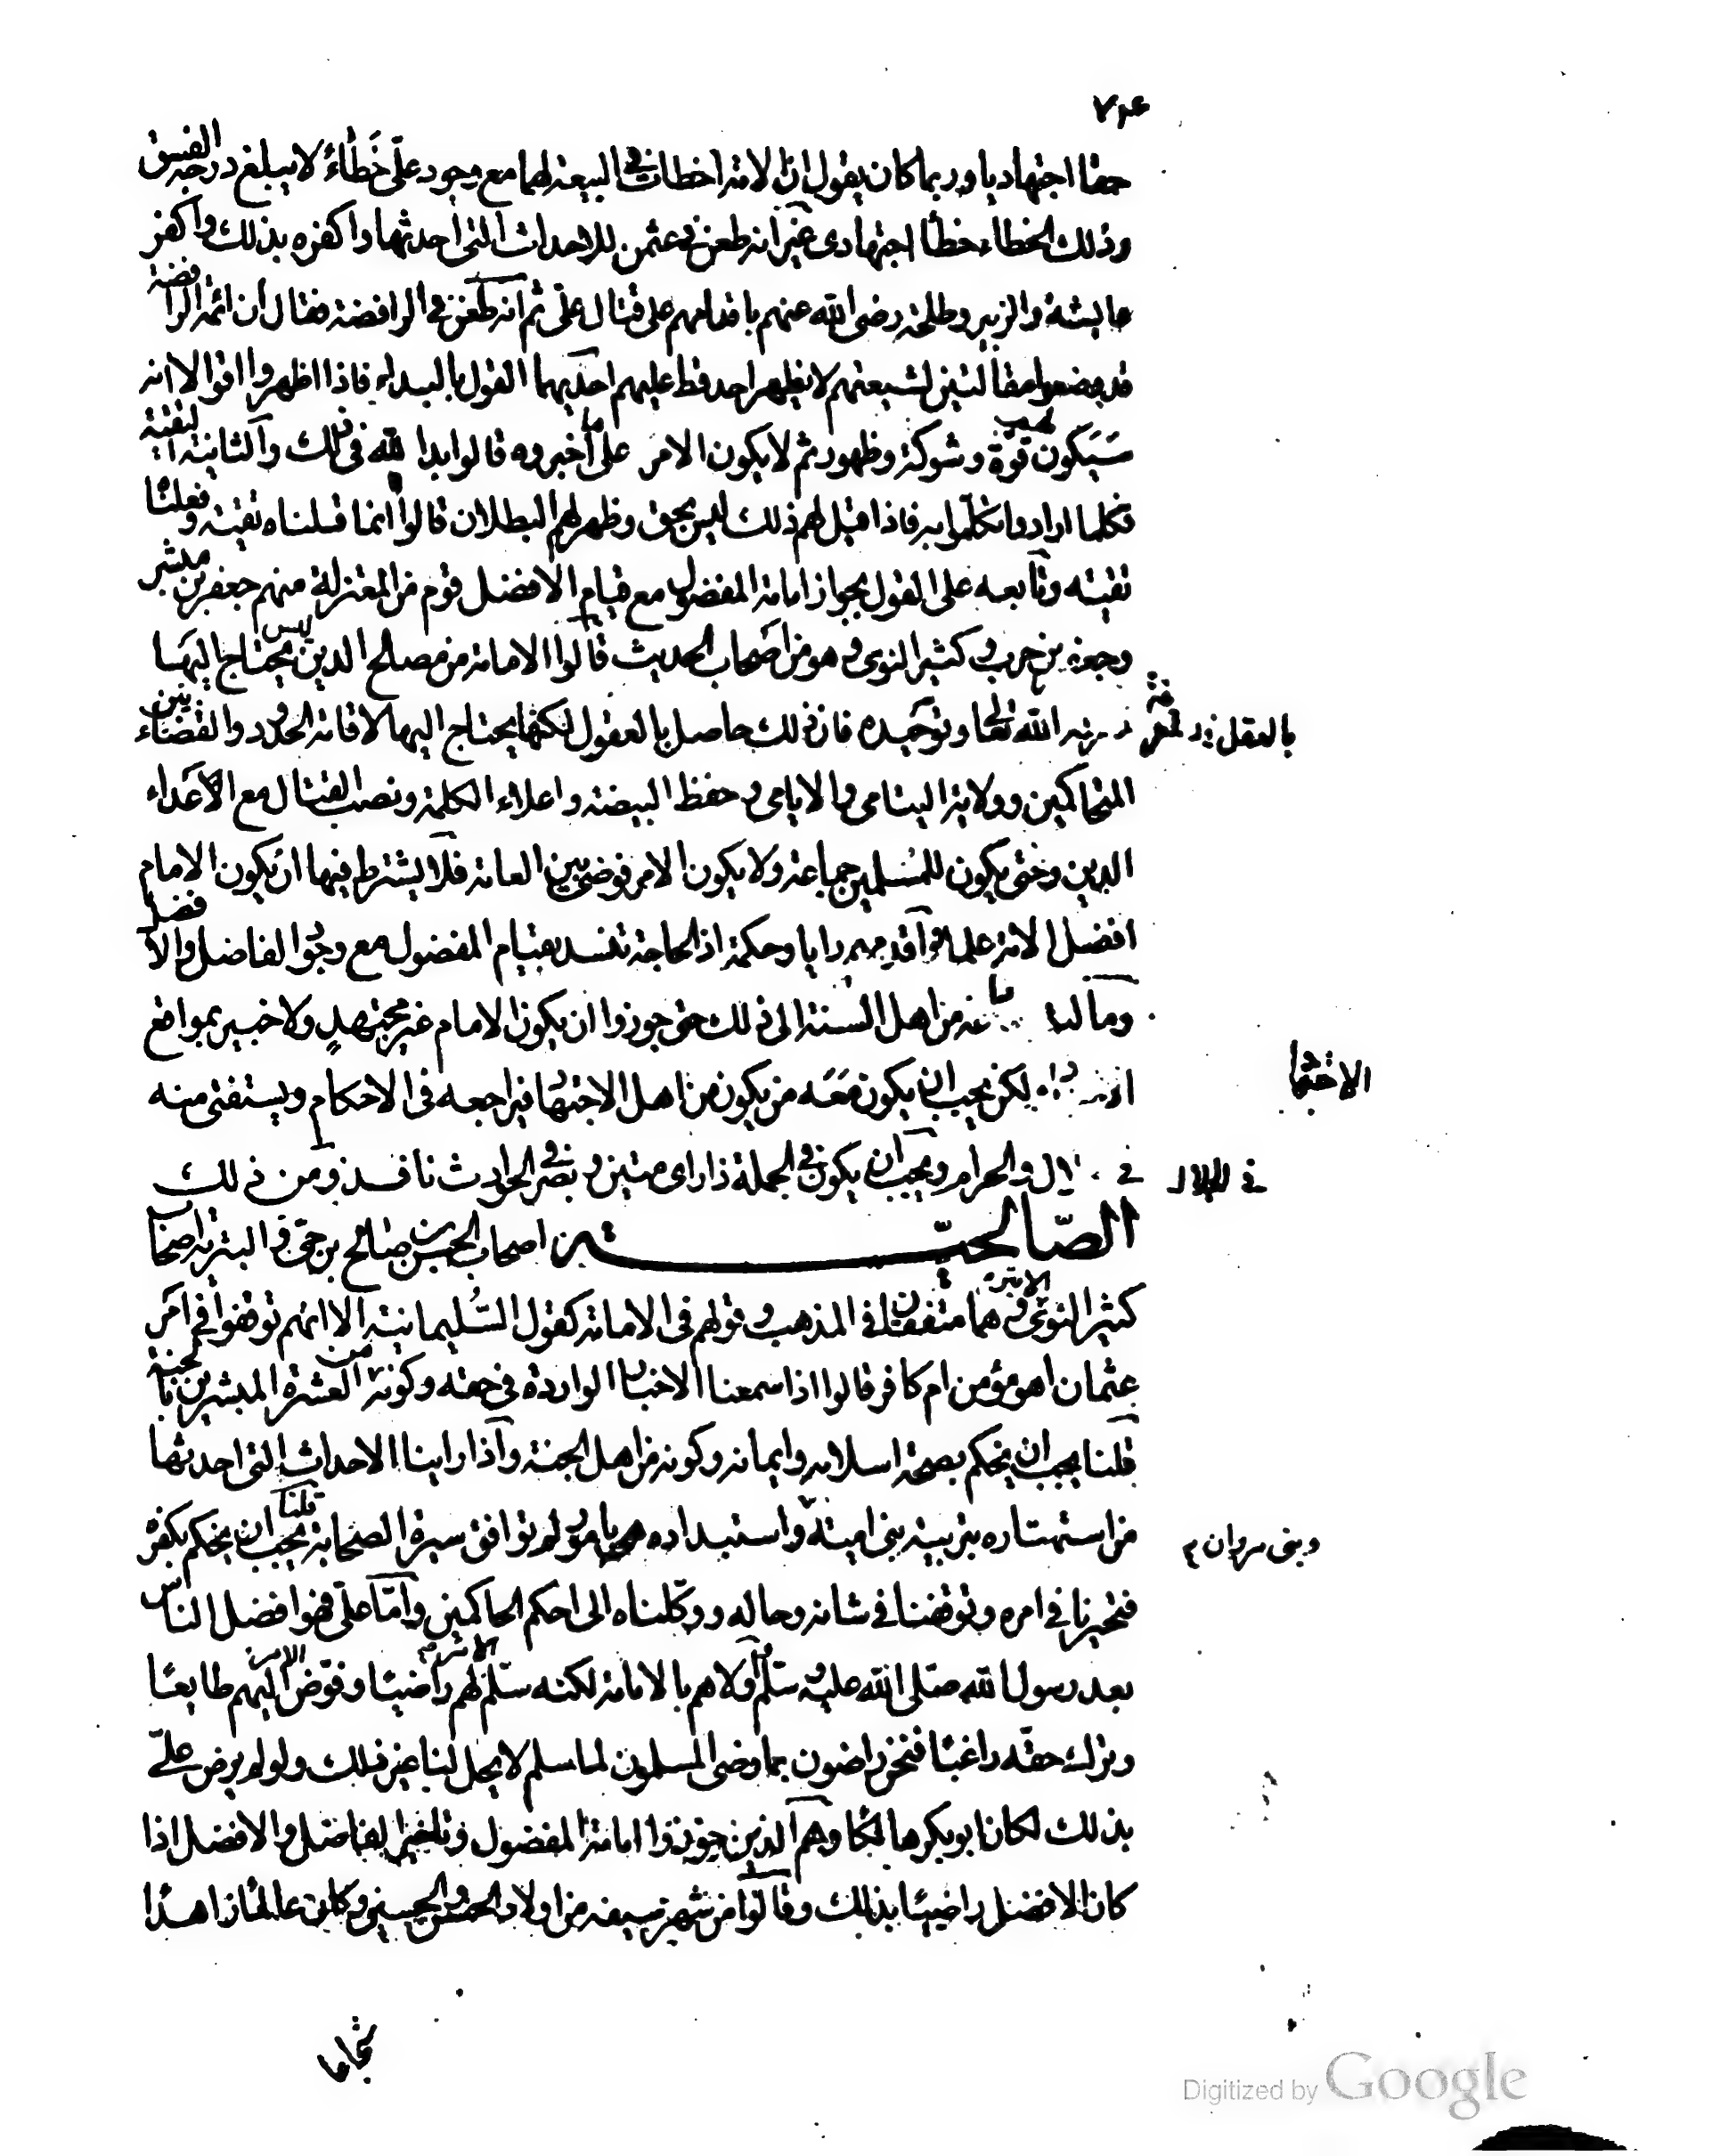 ٧٤
حقا اجتهاديا وربما كان يقول ان الامة اخطات في البيعة لهما مع وجود على خطاء لا يبلغ درجة الفسق
وذلك الخطاء خطأ اجتهادى غير انه طعن في عثمن للاحداث التى احدثها واكفره بذلك واكفر
عايشة والزبير وطلحة رضى الله عنهم باقدامهم على قتال على ثم انه طعن فى الرافضة فقال ان ائمة الرافضة
قد وضعوا مقالتين لشيعتهم لا يظهر احد قط عليهم احديهما القول بالبداء فاذا اظهروا اقوالا انه
سيكون لهم قوة وشوكة وظهور ثم لا يكون الامر على ما اخبروه قالوا بدا لله فى ذلك والثانية التقية
فكلما ارادوا تكلموا به فاذا قيل لهم ذلك ليس بحق وظهر لهم البطلان قالوا انما قلناه تقية وفعلنا
تقية وتابعه على القول بجواز امامة المفضول مع قيام الافضل قوم من المعتزلة منهم جعفر بن مبشر
وجعفر بن حرب وكثير النوى وهو من اصحاب الحديث قالوا الامامة من مصالح الدين ليس يحتاج اليها
لمعرفة الله تعالى وتوحيده فان ذلك حاصل بالعقول لكنها يحتاج اليها لاقامة الحدود والقضاء بين
بالعقل
المتحاكمين وولاية اليتامى والايامى وحفظ البيضة واعلاء الكلمة ونصب القتال مع الاعداء
الدين وحتى يكون للمسلمين جماعة ولا يكون الامر فوضى بين العامة فلا يشترط فيها ان يكون الامام
افضل الامة علما واقدمهم رايا وحكمة اذ الحاجة تنسد بقيام المفضول مع وجود الفاضل والافضل
ومالت من اهل السنة الى ذلك حتى جوزوا ان يكون الامام غير مجتهد ولا خبير بمواقع
الاجتهاد
لكن يجب ان يكون معه من يكون من اهل الاجتهاد فيراجعه فى الاحكام ويستفتى منه
فى الحلال
فى الحلال والحرام ويجب ان يكون فى الجملة ذا راى متين وبصر فى الحوادث نافذ ومن ذلك
الصّالحيّة اصحاب الحسن بن صالح بن حى والبترية اصحاب
كثير النوى الابتر وهما متفقان فى المذهب وقولهم فى الامامة كقول السليمانية الا انهم توقفوا فى امر
عثمان اهو مؤمن ام كافر قالوا اذا سمعنا الاخبار الواردة فى حقه وكونه من العشرة المبشرين بالجنة
قلنا يجب ان يحكم بصحة اسلامه وايمانه وكونه من اهل الجنة واذا راينا الاحداث التى احدثها
من استهتاره بتربية بنى امية واستبداده بامور لم توافق سيرة الصحابة قلنا يجب ان يحكم بكفره
وبنى مروان
فتحيرنا فى امره وتوقفنا فى شانه وحاله ووكلناه الى احكم الحاكمين واما على فهو افضل الناس
بعد رسول الله صلى الله عليه وسلم واولاهم بالامامة لكنه سلم الامر لهم راضيا وفوض الامر اليهم طايعا
وترك حقه راغبا فنحن راضون بما رضى المسلمون لما سلم لا يحل لنا غير ذلك ولو لم يرض على
بذلك لكان ابو بكر هالكا وهم الذين جوزوا امامة المفضول وتاخير الفاضل والافضل اذا
كان الافضل راضيا بذلك وقالوا من شهر سيفه من اولاد الحسن والحسين وكان عالما زاهدا
شجاعا
Digitized by Google